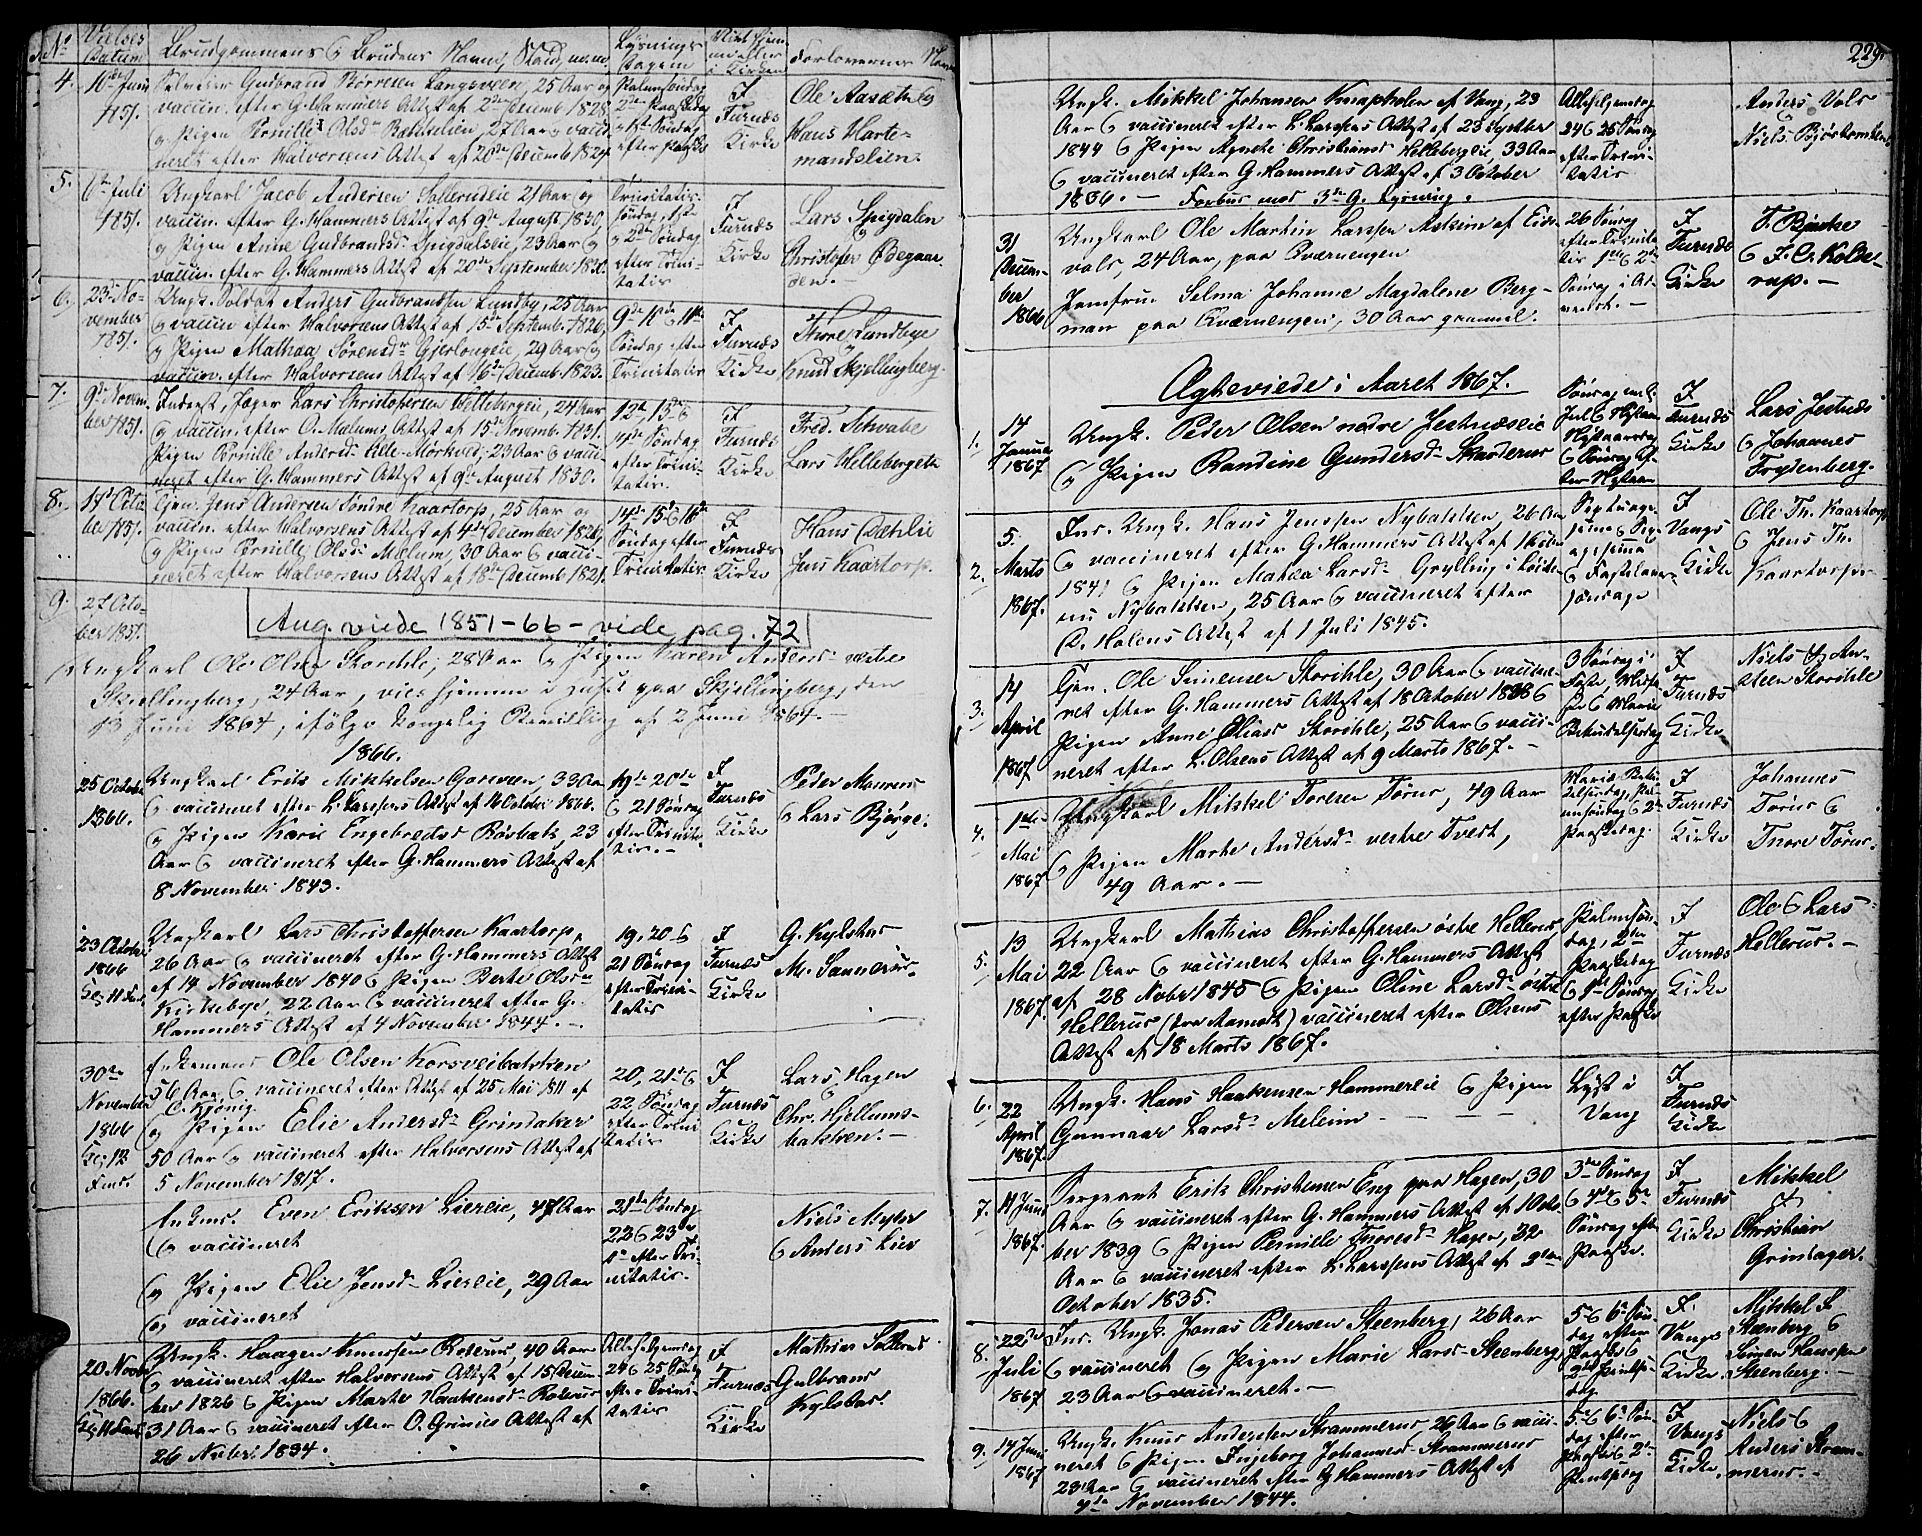 No Vielses Datum Brudgommens & Brudens Navne, Stand, m.m. Lysnings Dagene i Kirken Forlovernes Navne
4. 1851. Gudbrand Børresen Langsveen, 25 Aar og
vaccin. efter G. Hammers Attest af 2den Decemb. 1828
og Pigen Pernille Olsdr 27 Aar & vacci-
neret efter Halvorsens Attest af 20de Decemb. 1824.
Palmesøndag
2den Paaskedag
& 1ste Søndag
efter Paaske
I
Furnæs
Kirke
Ole Aasæth &
Hans Harte-
mandslien.
5. 6te Juli
1851.
Ungkarl Jacob Andersen Sollerudeie 21 Aar og
vaccin. efter G. Hammers Attest af 9de August 1830,
og Pigen Anne Gudbrandsdr Spigdalseie, 23 Aar &
vaccin. efter G. Hammers Attest af 20de September 1830.
Trinitatis
Søndag, 1ste
& 2den Søndag
efter Trini-
tatis
I
Furnæs
Kirke
Lars Spigdalen
&
Christopher Ødegaar-
den.
6. 23de No-
vember
1851.
Ungk. Soldat Anders Gudbrandsen Lundby, 25 Aar
& vaccin. efter Halvorsens Attest af 15de Septemb. 1826,
og Pigen Mathea Sørensdr Gjerlougeie, 29 Aar &
vaccin. efter Halvorsens Attest af 16de Decemb. 1823.
9de 10de & 11te
Søndag efter
Trinitatis
I
Furnæs
Kirke
Thore Lundbye
&
Knud Skjellingberg.
7. 9de Novem-
ber 1851.
Inderst, Jæger Lars Christophersen Hellebergeie, 24 Aar
& vaccin. efter O. Mælums Attest af 15de Novemb. 1831.
Pigen Pernille Andersdr Lille-Mørkved, 23 Aar & vacci-
neret efter G. Hammers Attest af 9de August 1830.
12te 13de &
14de Søndag
efter Trini-
tatis.
I
Furnæs
Kirke
Fred. Schwabe
Lars Helleberget
8. Octo-
ber 1851.
Jens Andersen Søndre Kaartorp, 25 Aar og
vaccin. efter Halvorsens Attest af 4de December 1826,
og Pigen Pernille Olsdr Mælum, 30 Aar & vacci-
neret efter Halvorsens Attest af 18de Decemb. 1821.
14de 15de & 16de
Søndag efter
Trinitatis.
I
Furnæs
Kirke
Hans Dæhlie
Jens Kaartorp.
9. 27 Octo-
ber 1851.
Ang. viede 1851-66 - vide pag. 72
Ungkarl Ole Olsen Storihle, 28 Aar & Pigen Karen Andersd. vestre
Skjellingberg, 24 Aar, vies hjemme i Huset paa Skjellingberg, den
13 Juni 1864, ifølge kongelig Bevilling af 2 Juni 1864.-
1866.
25 October
1866.
Ungkarl Erik Mikkelsen Gorsveen, 33 Aar
& vaccineret efter L. Larssens Attest af 16 October 1866.
& Pigen Karie Engebredsd. Børbæk, 23
Aar & vaccineret efter G. Hammers Attest af
8 November 1843.
19de 20de
& 21 Søndag
efter Trinita-
tis.-
I
Furnæs
Kirke
Peder Maurers
& Lars Bjørge.
23 October
1866
Ungkarl Lars Christoffersen Kaartorp,
26 Aar & vaccineret efter G. Hammers Attest
af 14 November 1840 & Pigen Berte Olsdr
Kirkebye, 22 Aar & vaccineret efter G.
Hammers Attest af 4 November 1844.-
19, 20 &
21 Søndag
efter Trini-
tatis
I
Furnæs
Kirke
G. Kylstad
M. Sannerud.
30te
November
1866
Enkemand Ole Olsen Korsveibakken
56 Aar & vaccineret efter Attest af 25 Mai 1811 af
C. Kjønig
& Pigen Elie Andersd. Grindaker
50 Aar & vaccineret efter Halvorsens Attest af
5 November 1817.
20, 21de &
22 Søndag
efter Trini-
tatis
I
Furnæs
Kirke
Lars Hagen
&
Chr. Hjellums-
bakken.-
Enkmd. Even Eriksen Liereie, 47 Aar
& vaccineret
& Pigen Elie Jensd. Liereie, 29 Aar
& vaccineret
21de Søndag
22 & 23de
efter Tri-
nitatis.
Niels Myhr
& Anders Lier
20 Novbr
1866.
Ungk. Haagen Knudsen Roterud, 40 Aar
& vaccineret efter Halvorsens Attest af 15 Decem-
ber 1826 & Pigen Marte Haakensd. Roterud
31 Aar & vaccineret efter O. Grinies Attest af
26 Novbr. 1834.
Allehelgensdag
24 & 25 Søndag
efter Trini-
tatis
I
Furnæs
Kirke
Mathias Sollerud
Gulbrand
Kylstad.
229.
Ungk. Mikkel Johansen Knapholen af Vang, 23
Aar & vaccineret efter L. Larssens Attest af 23 Septbr
1844 & Pigen Agnethe Christiansd. Hellebergeie, 33 Aar
& vaccineret efter G. Hammers Attest af 3 October
1836.- Forbud mod 3die G. Lysning.
Allehelgensdag
24 & 25 Søndag
efter Trini-
tatis
Anders Vold
&
Niels
31
Decem-
ber
1866
Ungkarl Ole Martin Larssen Askim af Eids-
vold, 24 Aar, paa Kværnengen
Jomfru Selma Johanne Magdalene Berg-
man paa Kværnengen, 30 Aar gammel.
26 Søndag
efter Trinita-
tis 1ste & 2den
Søndag i Ad-
vendt.-
I
Furnæs
Kirke
& F. C. Kolde-
rup.-
Ægteviede i Aaret 1867.
1. 14
Januar
1867.
Ungk. Peder Olsen nedre Jestnæseie
& Pigen Randine Gundersd. Skarderud
Søndag mel.
Jul & Nytaar
Nytaarsdag
& Søndag ef-
ter Nytaar
I
Furnæs
Kirke
Lars Jestnæs
& Johannes
Frydenberg.
2. 5.
Marts
1867.
Ind. Ungk. Hans Jenssen Nybakken, 26 Aar
& vaccineret efter G. Hammers Attest af
1841 & Pigen Mathea Larsd. Grylling i Løiten
nu Nybakken, 25 Aar & vaccineret efter
A. Holens Attest af 1 Juli 1845.
& Fastelavns
Søndage
I
Vangs
Kirke
Ole Th. Kaartorp
& Jens Th.
Kaartorp.
3. 14
April
1867
Gjæn. Ole Simensen Storihle, 30 Aar & vaccine-
ret efter G. Hammers Attest af 18 October 1836 &
Pigen Anne Eliasd Storihle, 25 Aar & vacci-
neret efter L. Olsens Attest af 9 Marts 1867.-
3 Søndag i
Faste, Midfa-
ste & Mariæ
Bebudelsesdag
I
Furnæs
Kirke
Niels & An-
dreas Storihle
4. 1ste
Mai
1867
Ungkarl Mikkel Toresen Tørud, 49 Aar
& Pigen Marte Andersd. vestre Tvedt,
49 Aar.-
Mariæ Bebu-
delsesdag, Pal-
mesøndag & 2den
Paaskedag.
I
Furnæs
Kirke
Johannes
Tørud &
Thore Tørud.
5. 13
Mai
1867.
Ungkarl Mathias Christoffersen østre Hellerud
22 Aar & vaccineret efter G. Hammers Attest
af 28 Novbr 1845 & Pigen Oline Larsd. østre
Hellerud (fra Aamodt) vaccineret efter Olsens
Attest af 18 Marts 1867.
Palmesøn-
dag, 2den
Paaskedag
& 1ste Søndag
efter Paaske
I
Furnæs
Kirke
Ole & Lars
Hellerud.-
6. 22
April
1867.
Ungk. Hans Haakensen Hammereie & Pigen
Gunnaar Larsd. Melum
Lyst i
Vang
I
Furnæs
Kirke
7. 11 Juni
1867.
Sergeant Erik Christensen Eng paa Hagen, 30
Aar & vaccineret efter G. Hammers Attest af 1 Octo-
ber 1839 & Pigen Pernille Thoresd. Hagen, 32
Aar & vaccineret efter L. Larssens Attest af
October 1835.
3die Søndag
& 4de & 5te
Søndag efter
Paaske.
I
Furnæs
Kirke
Mikkel
&
Christian
Grindager.
8. 22de
Juli
1867
Ind. Ungk. Jonas Pedersen Steenberg, 26 Aar
& vaccineret & Pigen Marie Larsd. Steenberg,
23 Aar & vaccineret.-
5te & 6te Søn-
dag efter
Paaske &
2den Pintse-
dag
I.
Vangs
Kirke.
Mikkel L.
Steenberg &
Simen Hanssen
Steenberg.-
9. 14 Juni
1867
Ungk. Knud Andersen Strammerud, 26 Aar & vacci-
neret & Pigen Ingeborg Johannesd. Strammerud
23 Aar & vaccineret efter G. Hammers Attest af
November 1844.
5te & 6te Søn-
dag efter
Paaske & 2den
Pintsedag
I
Vangs
Kirke.
Niels &
Anders Stram-
merud.-